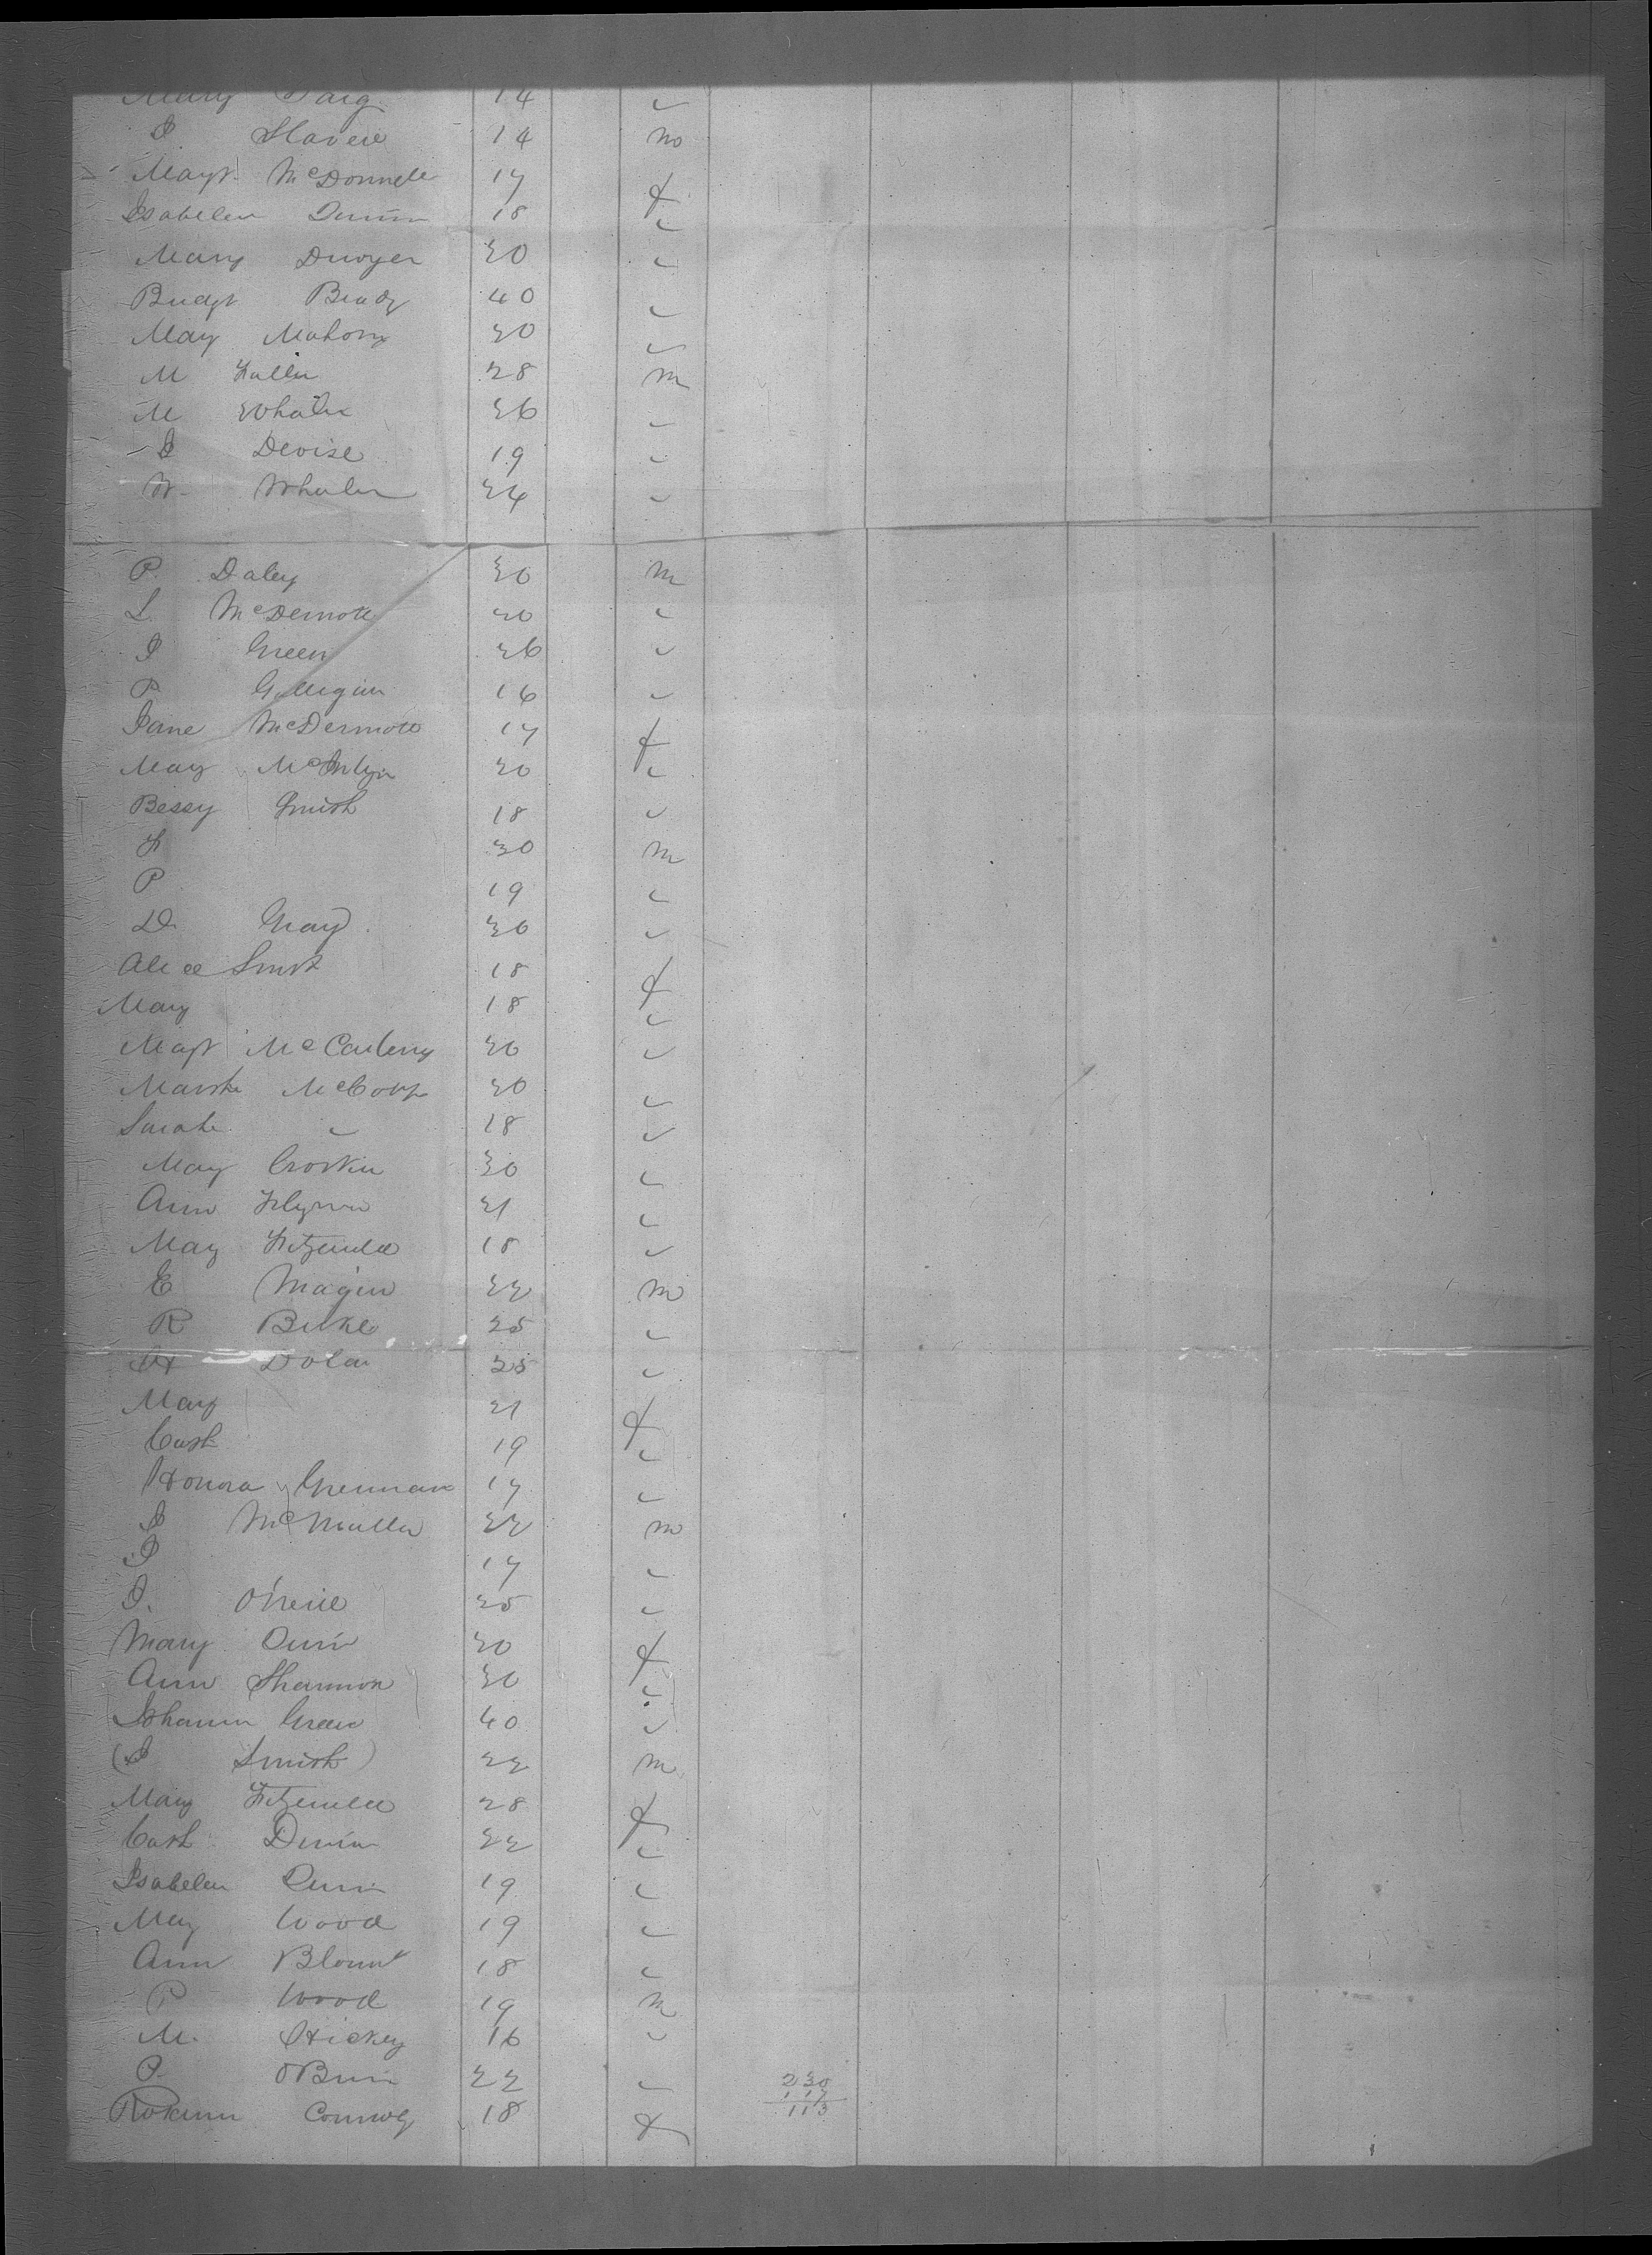 Mary 14 "
J 14 m
Magt McDonnell 17 f
Isabelen Dunn 18 "
Mary Dwyer 20 "
Bridgt Brady 40 "
May Mahony 20 "
M Fuller 28 m
M Whalen 26 "
J Devise 19 "
W. Whalen 24 "
P. Daley 20 m
L. McDermott 20 "
J Green 26 "
P. Galligan 16 "
Jane McDermott 17 f
May 20 "
Bessy Smith 18 "
F 30 m
P 19 "
D. Gray 20 "
Alice Smith 18 f
Mary 18 "
Magt McCarthy 20 "
Martha 20 "
Sarah " 18 "
May 20 "
Ann Flynn 21 "
May Fitzgerald 18 "
E Magin 22 m
R Burke 25 "
H Dolan 25 "
Mary 21 f
Cath 19 "
Honora Grennan 17 "
J McMullen 22 m
J 17 "
J. O'Neill 25 "
Mary Dunn 20 f
Ann Shannon 20 "
Johanna Green 40 "
(J Smith) 22 m
Mary Fitzgerald 28 f
Cath Dunn 22 "
Isabelen Dunn 19 "
May Wood 19 "
Ann Blount 18 "
P Wood 19 m
M. Hickey 16 "
P. OBrien 22 "
230
117
113
Connoly 18 f